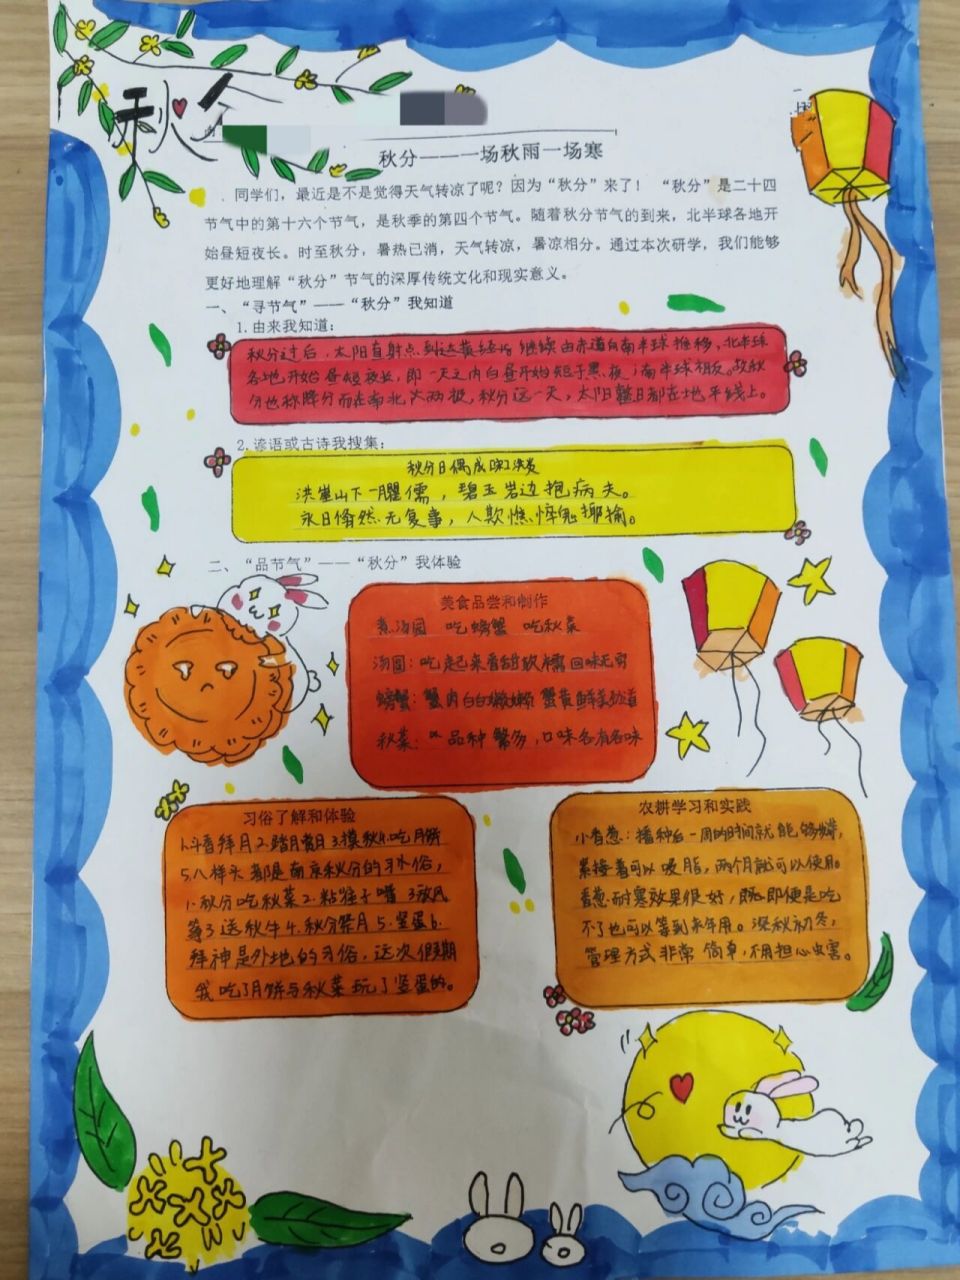 秋分
秋分——一场秋雨一场寒
同学们，最近是不是觉得天气转凉了呢？因为“秋分”来了！ “秋分”是二十四
节气中的第十六个节气，是秋季的第四个节气。随着秋分节气的到来，北半球各地开
始昼短夜长。时至秋分，暑热已消，天气转凉，暑凉相分。通过本次研学，我们能够
更好地理解“秋分”节气的深厚传统文化和现实意义。
一、“寻节气”——“秋分”我知道
1.由来我知道：
秋分过后，太阳直射点到达黄经 继续由赤道向南半球推移，北半球
各地开始昼短夜长，即一天之内白昼开始短于黑夜；南半球相反。故秋
分也称降分而在南北大两极，秋分这一天，太阳整日都在地平线上。
2.谚语或古诗我搜集：
秋分日偶成 洪
洪崖山下一臞儒，碧玉岩边抱病夫。
永日翛然无复事，人欺憔悴鬼揶揄。
二、“品节气”——“秋分”我体验
美食品尝和制作
煮汤圆 吃螃蟹 吃秋菜
汤圆：吃起来香甜软糯回味无穷
螃蟹：蟹肉白白嫩嫩 蟹黄鲜美劲道
秋菜： 品种繁多，口味各有各味
习俗了解和体验
1.斗香拜月2.踏月赏月3.摸秋4.吃月饼
5.八样头都是南京秋分的习俗，
1.秋分吃秋菜2.粘雀子嘴 3放风
筝3送秋牛4.秋分祭月5.竖蛋6.
拜神是外地的习俗，这次假期
我吃了月饼与秋菜玩了竖蛋的。
农耕学习和实践
小香葱：播种后一周的时间就能够 ，
紧接着可以 ，两个月就可以使用。
香葱耐寒效果很好， 即便是吃
不了也可以等到来年用。深秋初冬，
管理方式非常简单，不用担心虫害。